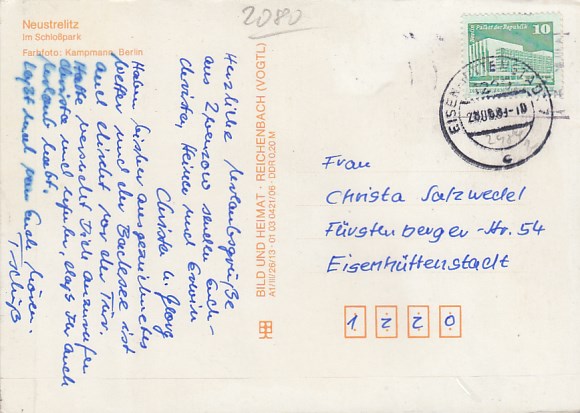 Neustrelitz
Im Schloßpark
Farbfoto: Kampmann, Berlin
2080
Herzliche Urlaubsgrüße
aus Zwenzow senden Euch -
Christa, Heiner und Erwin
Christa u. Georg
Haben bisher ausgezeichnetes
Wetter und der Badesee ist
auch direkt vor der Tür.
Hatte versucht Dich anzurufen
Christa und erfuhr, daß Ihr auch
Urlaub habt.
Laßt mal von Euch hören.
Tschüß
BILD UND HEIMAT · REICHENBACH (VOGTL)
A1/III/26/13 · 01 03 0421/06 · DDR 0,20 M
Berlin, Palast der Republik
10
DDR
EISENHÜTTENSTADT
c
Frau
Christa Salzwedel
Fürstenberger-Str. 54
Eisenhüttenstadt
1 2 2 0